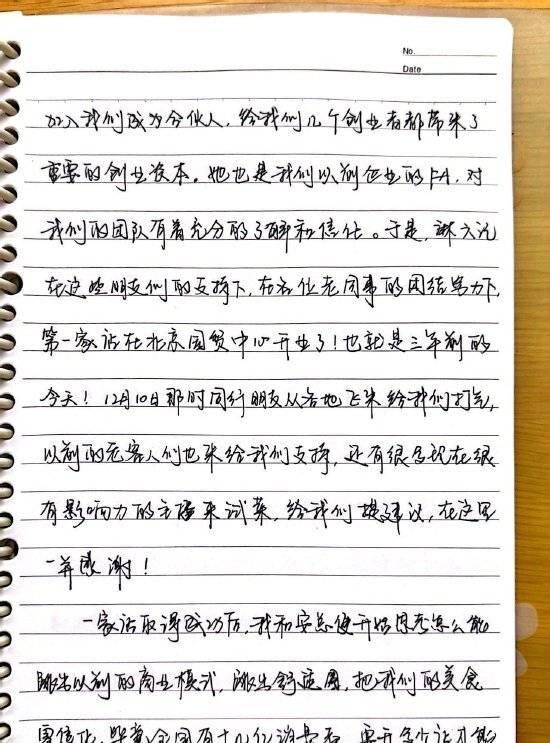 No.
Date
加入我们成为合伙人，给我们几个创业者都带来了
重要的创业资本。她也是我们以前企业的FA，对
我们的团队有着充分的了解和信任。于是，
在这些朋友们的支持下，在各位老同事的团结努力下，
第一家店在北京国贸中心开业了！也就是三年前的
今天！12月10日那时同行朋友从各地飞来给我们打气，
以前的老客人们也来给我们支持，还有很多现在很
有影响力的主播来试菜，给我们提建议，在这里
一并感谢！
一家店取得成功后，我和安总便开始思考怎么能
跳出以前的商业模式，跳出舒适圈，把我们的美食
零售化，毕竟全国有十几亿消费者，要开多少店才能